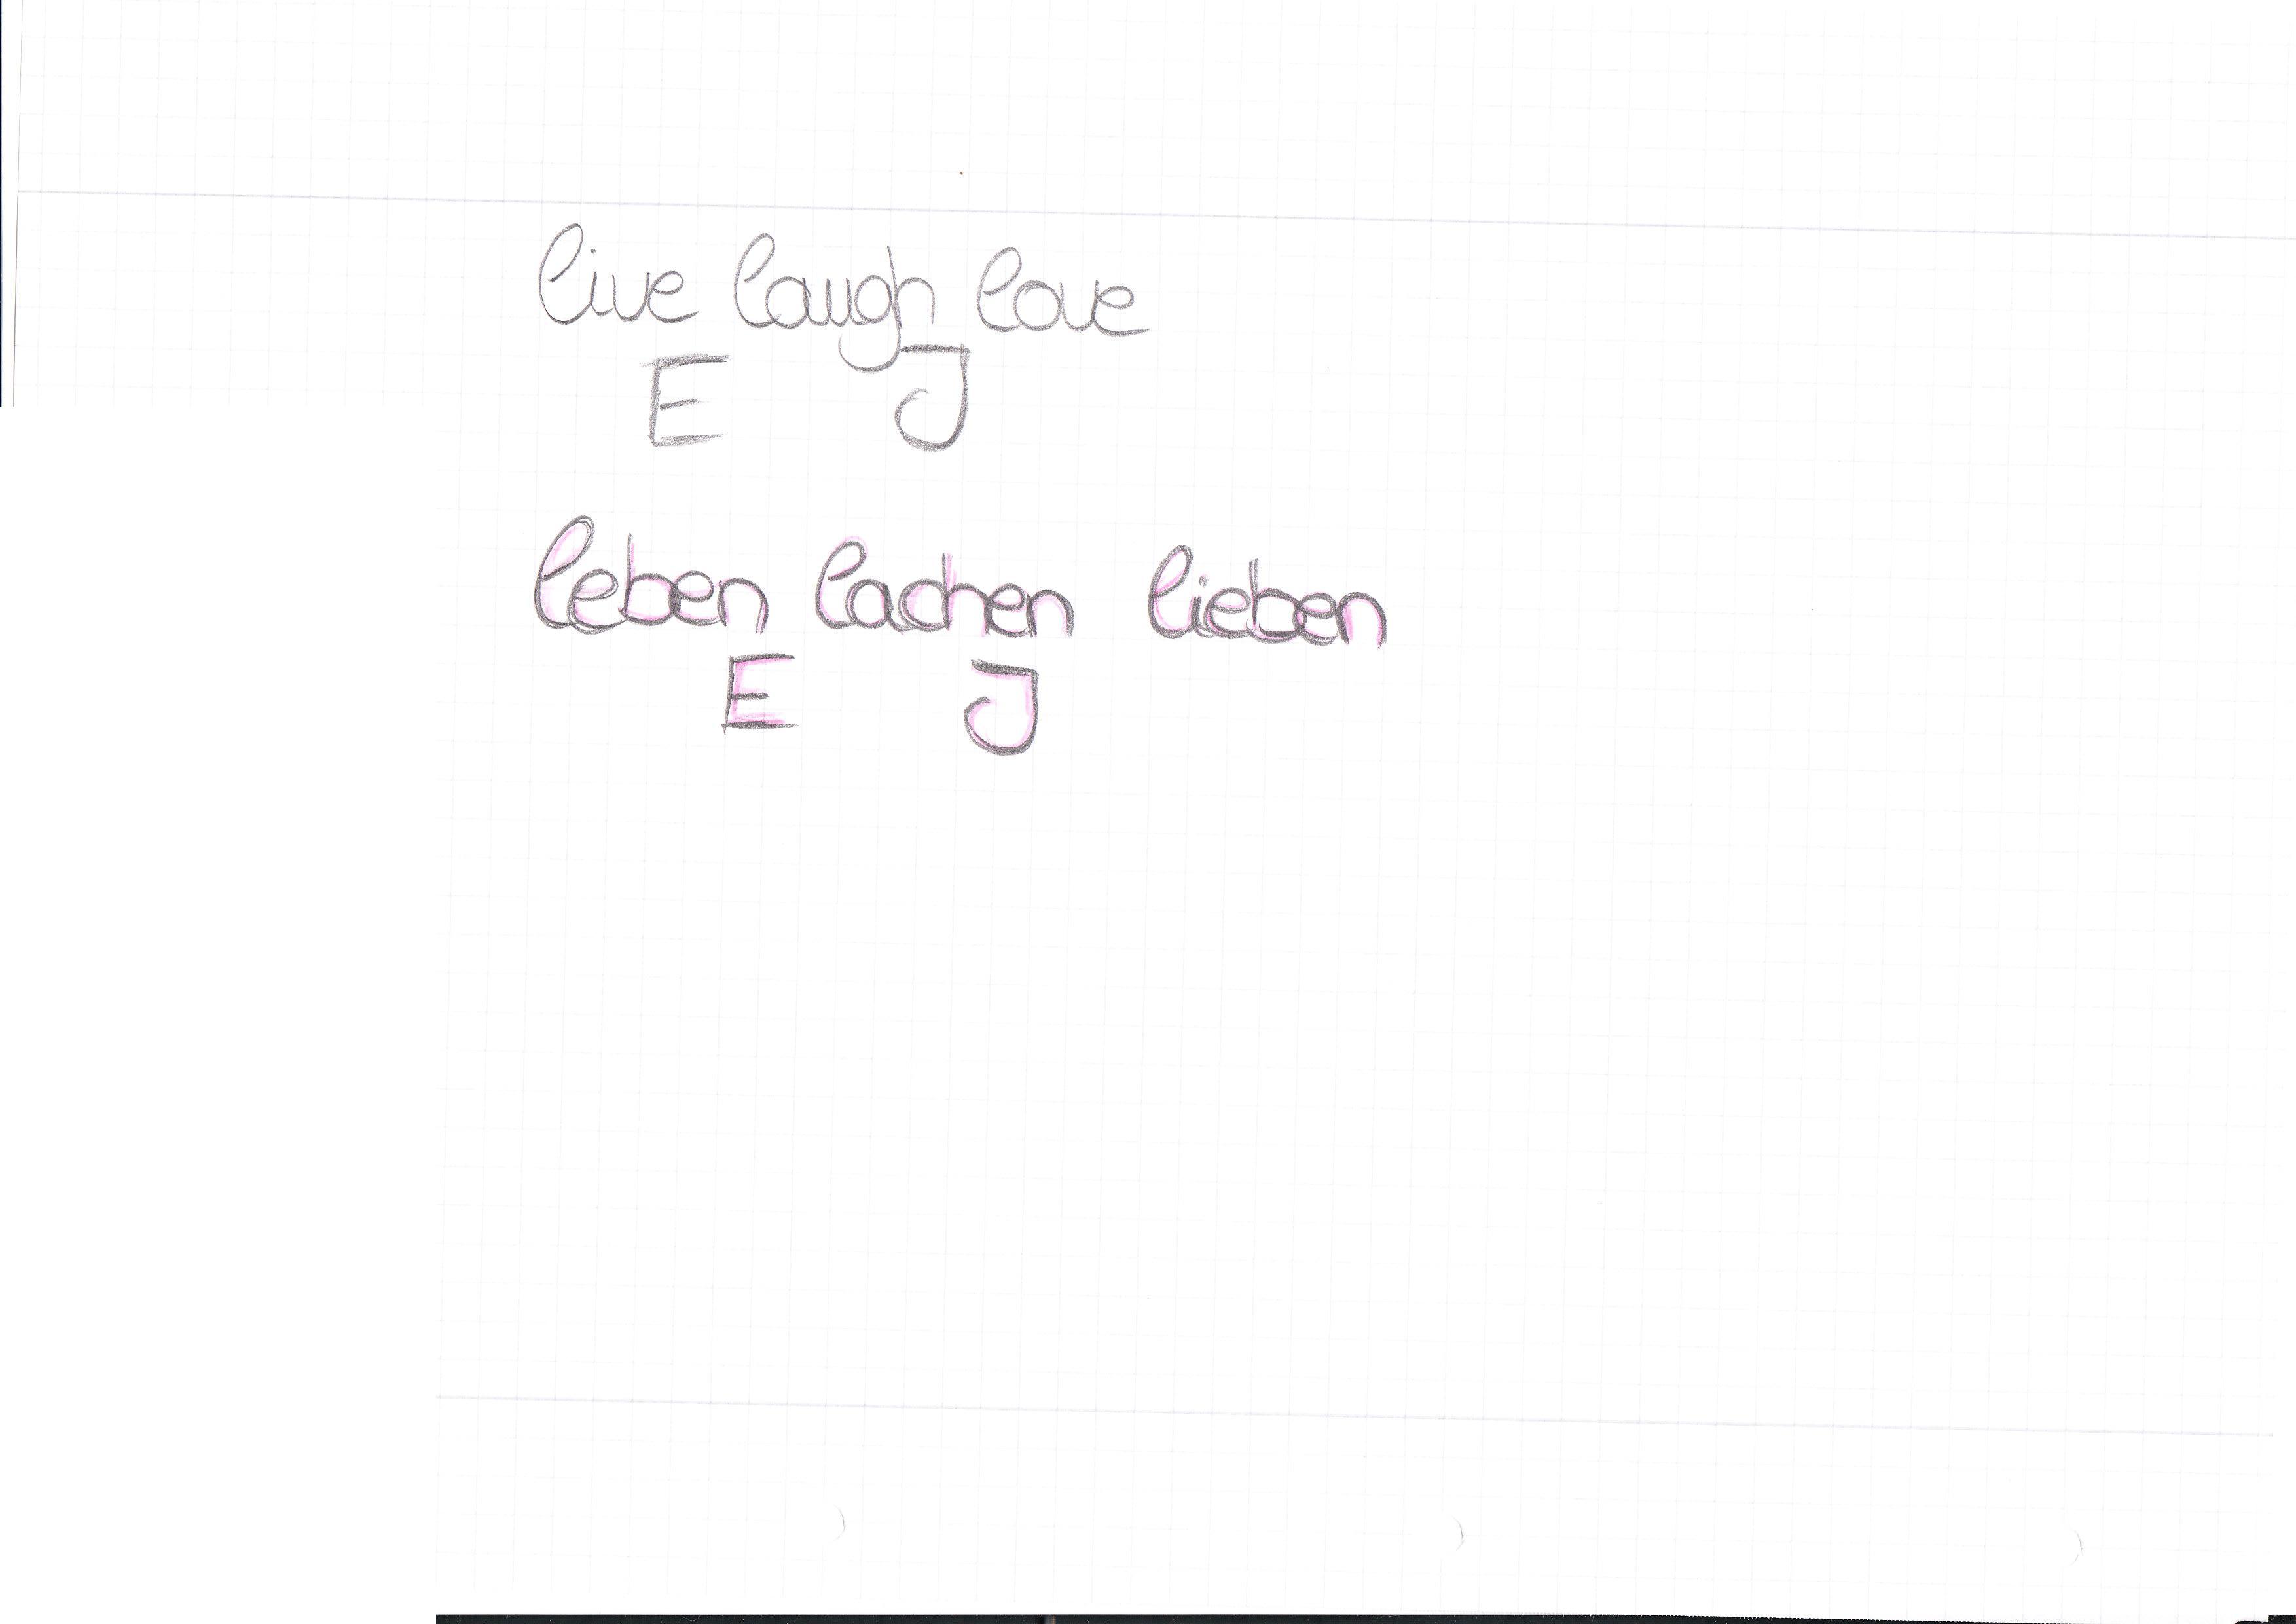 live laugh love
E J
leben lachen lieben
E J